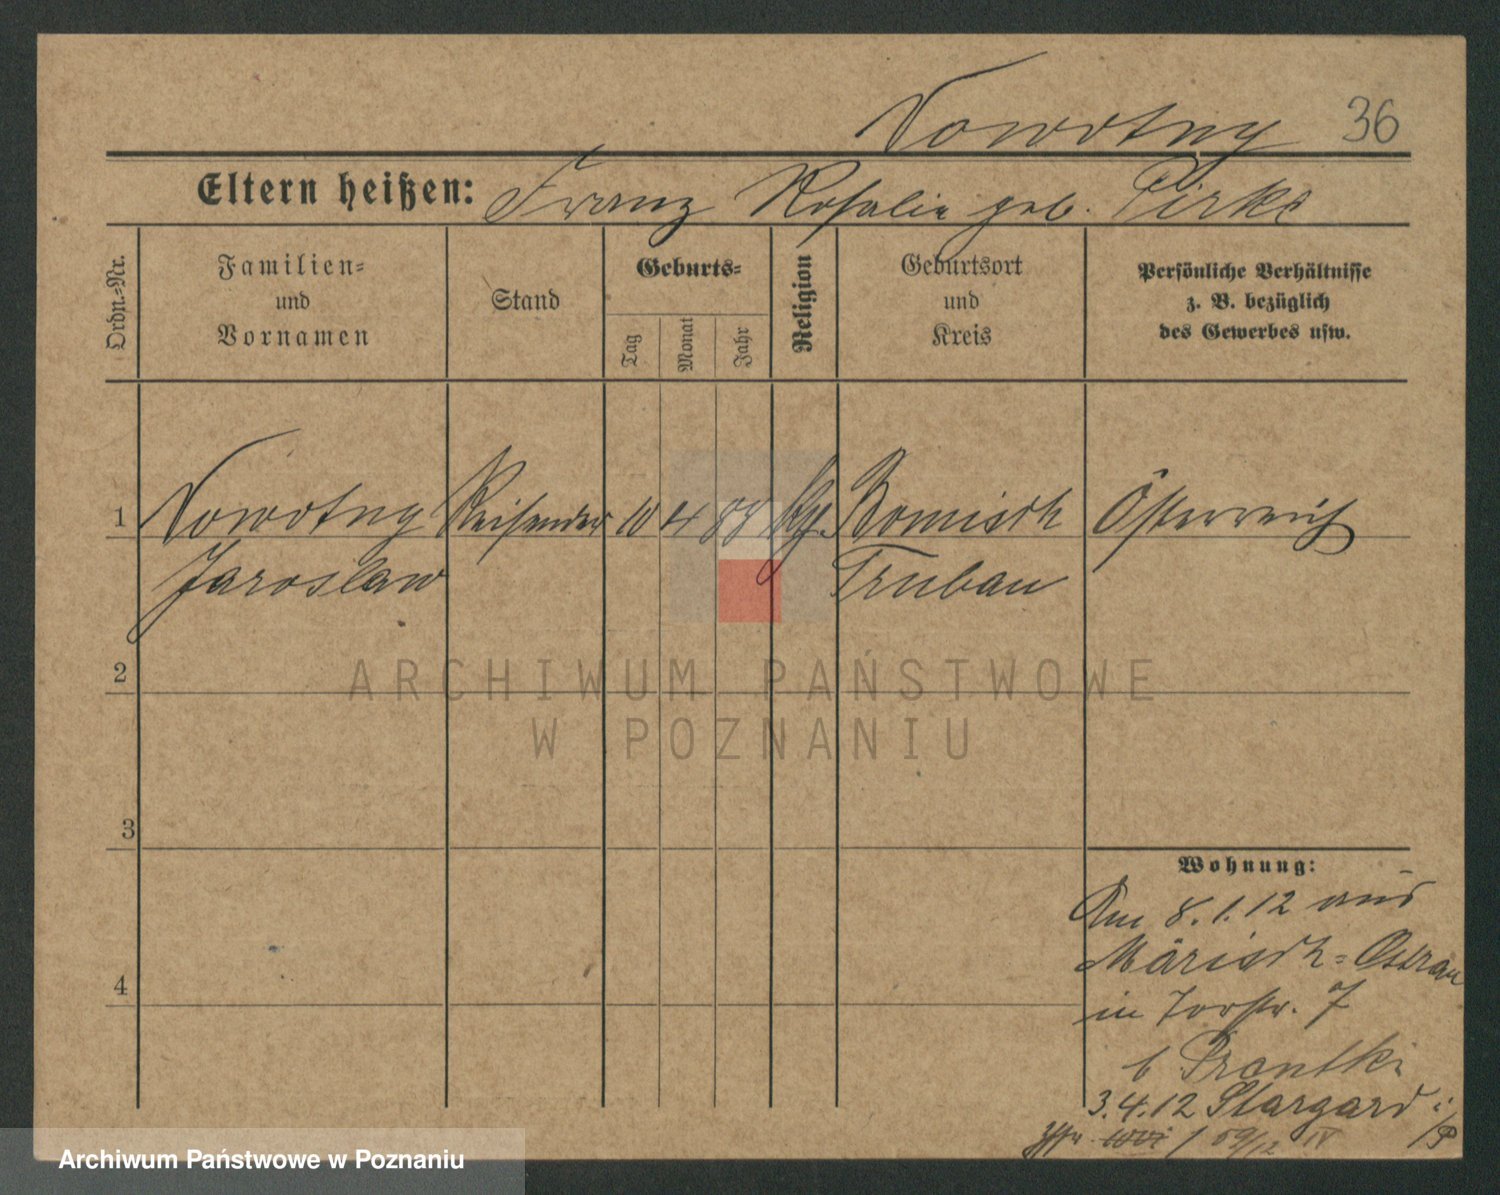 Nowotny 36
Eltern heißen: Franz Rosalie geb. Pirke
Ordn.-Nr.
Familien-
und
Vornamen
Stand
Geburts-
Tag
Monat
Jahr
Religion
Geburtsort
und
Kreis
Persönliche Verhältnisse
z. B. bezüglich
des Gewerbes usw.
1 Nowotny Reisender 10 4 88 Bömisch Österreich
Jaroslaw Trubau
2
ARCHIWUM PAŃSTWOWE
W POZNANIU
3
Wohnung:
Am 8.1.12 aus
Märisch-Ostrau
4
in Torstr. 7
b
3.4.12 Stargard i/P
Archiwum Państwowe w Poznaniu